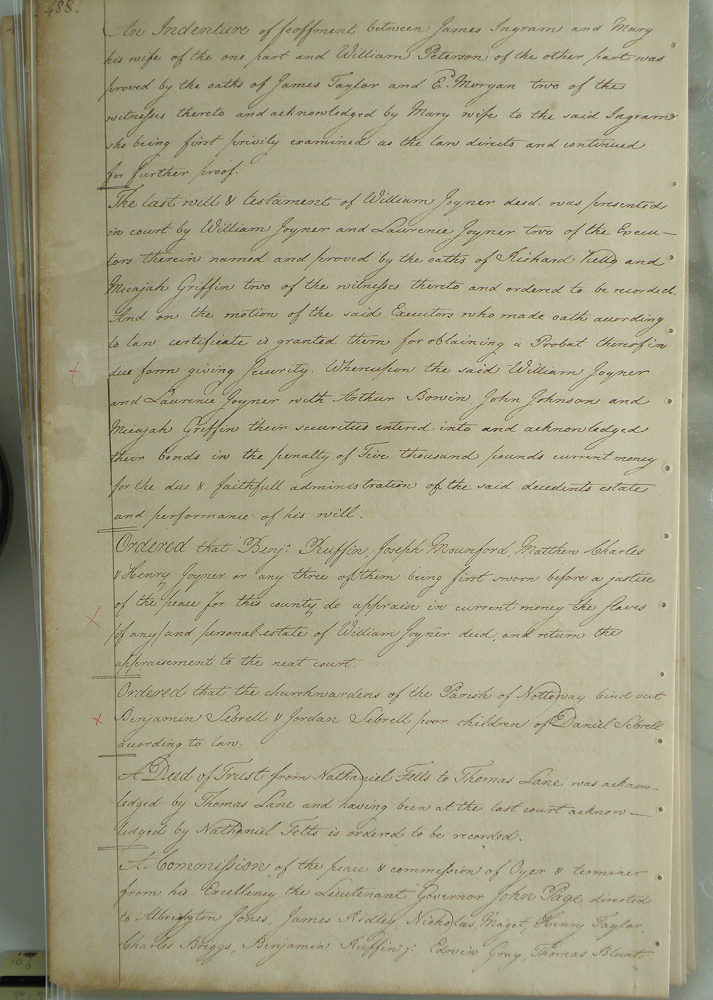 488.
An Indenture of feoffment between James Ingram and Mary
his wife of the one part and William Peterson of the other part was
proved by the oaths of James Taylor and E. Morgan two of the
witnesses thereto and acknowledged by Mary wife to the said Ingram
she being first privily examined as the law directs and continued
for further proof.
The last will & testament of William Joyner decd. was presented
in court by William Joyner and Laurence Joyner two of the Execu-
tors therein named and proved by the oaths of Richard Kello and
Micajah Griffin two of the witnesses thereto and ordered to be recorded.
And on the motion of the said Executors who made oath according
to law certificate is granted them for obtaining a Probat thereof in
due form giving security. Whereupon the said William Joyner
and Laurence Joyner with Arthur Bowin, John Johnson and
Micajah Griffin their securities entered into and acknowledged
their bonds in the penalty of Five thousand pounds current money
for the due & faithfull administration of the said decedents estate
and performance of his will.
Ordered that Benj: Ruffin, Joseph Mounford, Matthew Charles
& Henry Joyner or any three of them being first sworn before a justice
of the peace for this county do appraise in current money the slaves
if any and personal estate of William Joyner decd. and return the
appraisement to the next court.
Ordered that the churchwardens of the Parish of Nottoway bind out
Benjamin Sebrell & Jordan Sebrell poor children of Daniel Sebrell
according to law.
A Deed of Trust from Nathaniel Felts to Thomas Lane was acknow-
ledged by Thomas Lane and having been at the last court acknow-
ledged by Nathaniel Felts is ordered to be recorded.
A Commission of the peace & commission of Oyer & terminer
from his Excellency the Lieutenant Governor John Page directed
to Albrighton Jones, James Ridley, Nicholas Maget, Henry Taylor,
Charles Briggs, Benjamin Ruffin j: Edwin Gray, Thomas Blunt